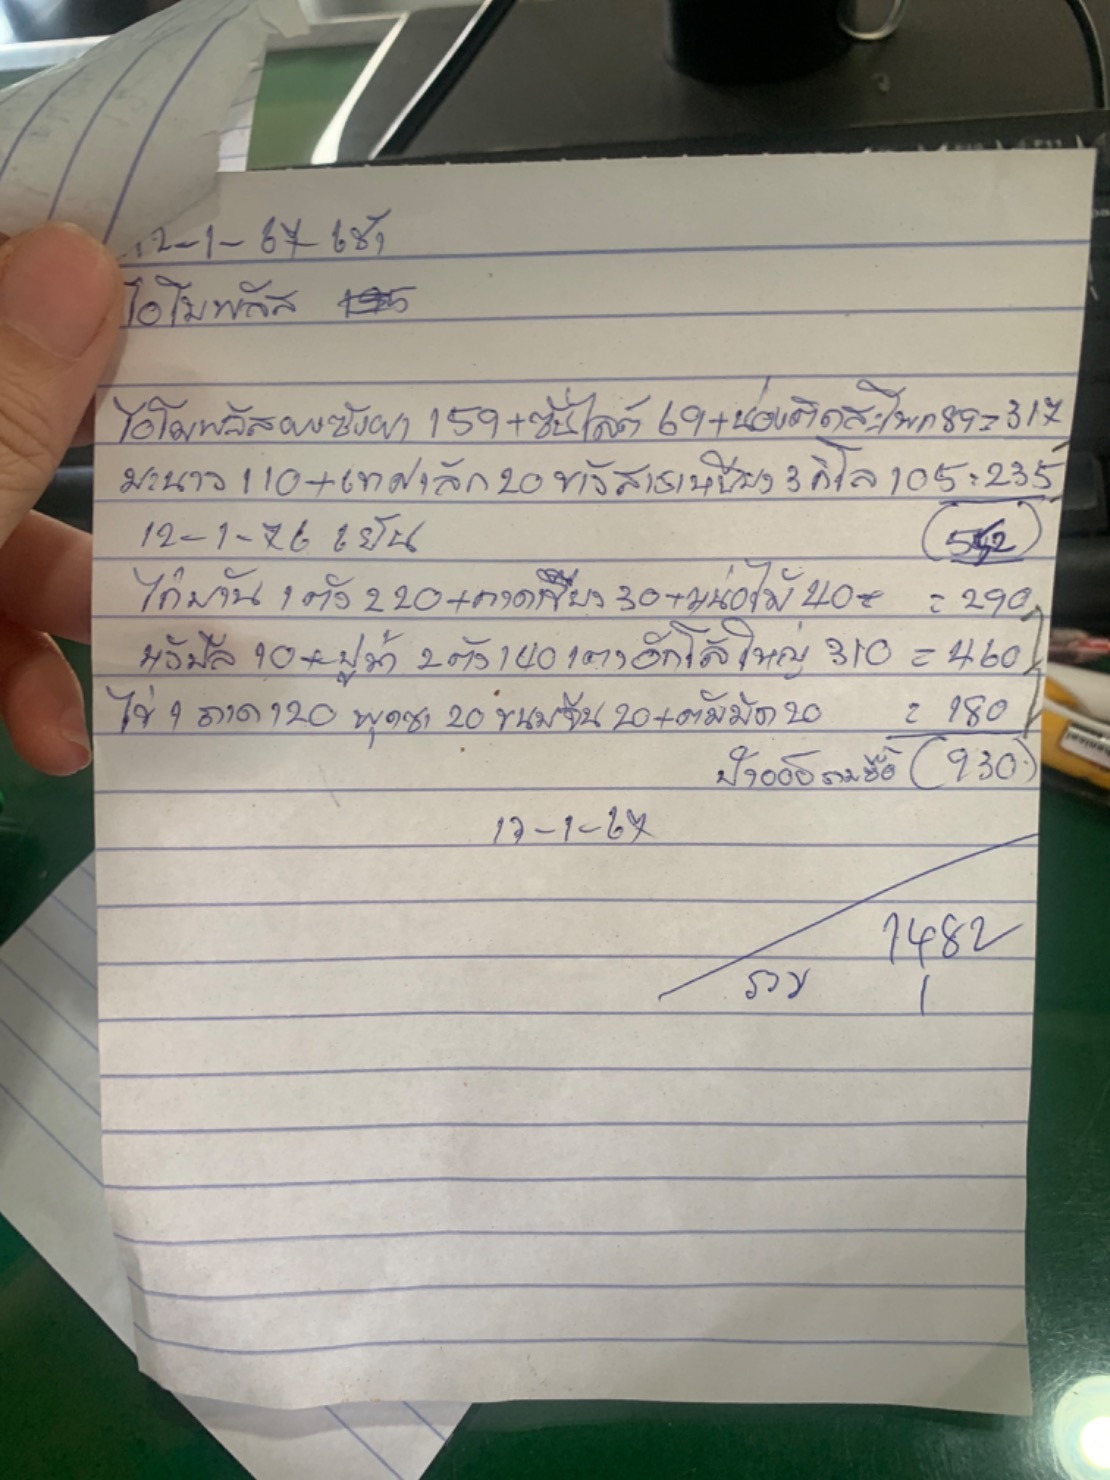 12-1-67 เช้า
ไอโมพลัส
ไอโมพลัสผงซักผ้า 159+ซันไลต์ 69+น่องติดสะโพก 89=317
มะนาว 110+เทศเล็ก 20 ข้าวสารเหนียว 3 กิโล 105=235
12-1-76 เย็น
(552)
ไก่บ้าน 1 ตัว 220+กวาดเขียว 30+หน่อไม้ 40 = 290
หัวมัส 10+ปูม้า 2 ตัว 140 เตาอั้กโล่ใหญ่ 310 = 460
ไข่ 1 ถาด 120 พุดซา 20 ขนมจีน 20+ต้มมัด 20 = 180
ป้าออยตามซื้อ (930)
13-1-67
1482
รวม